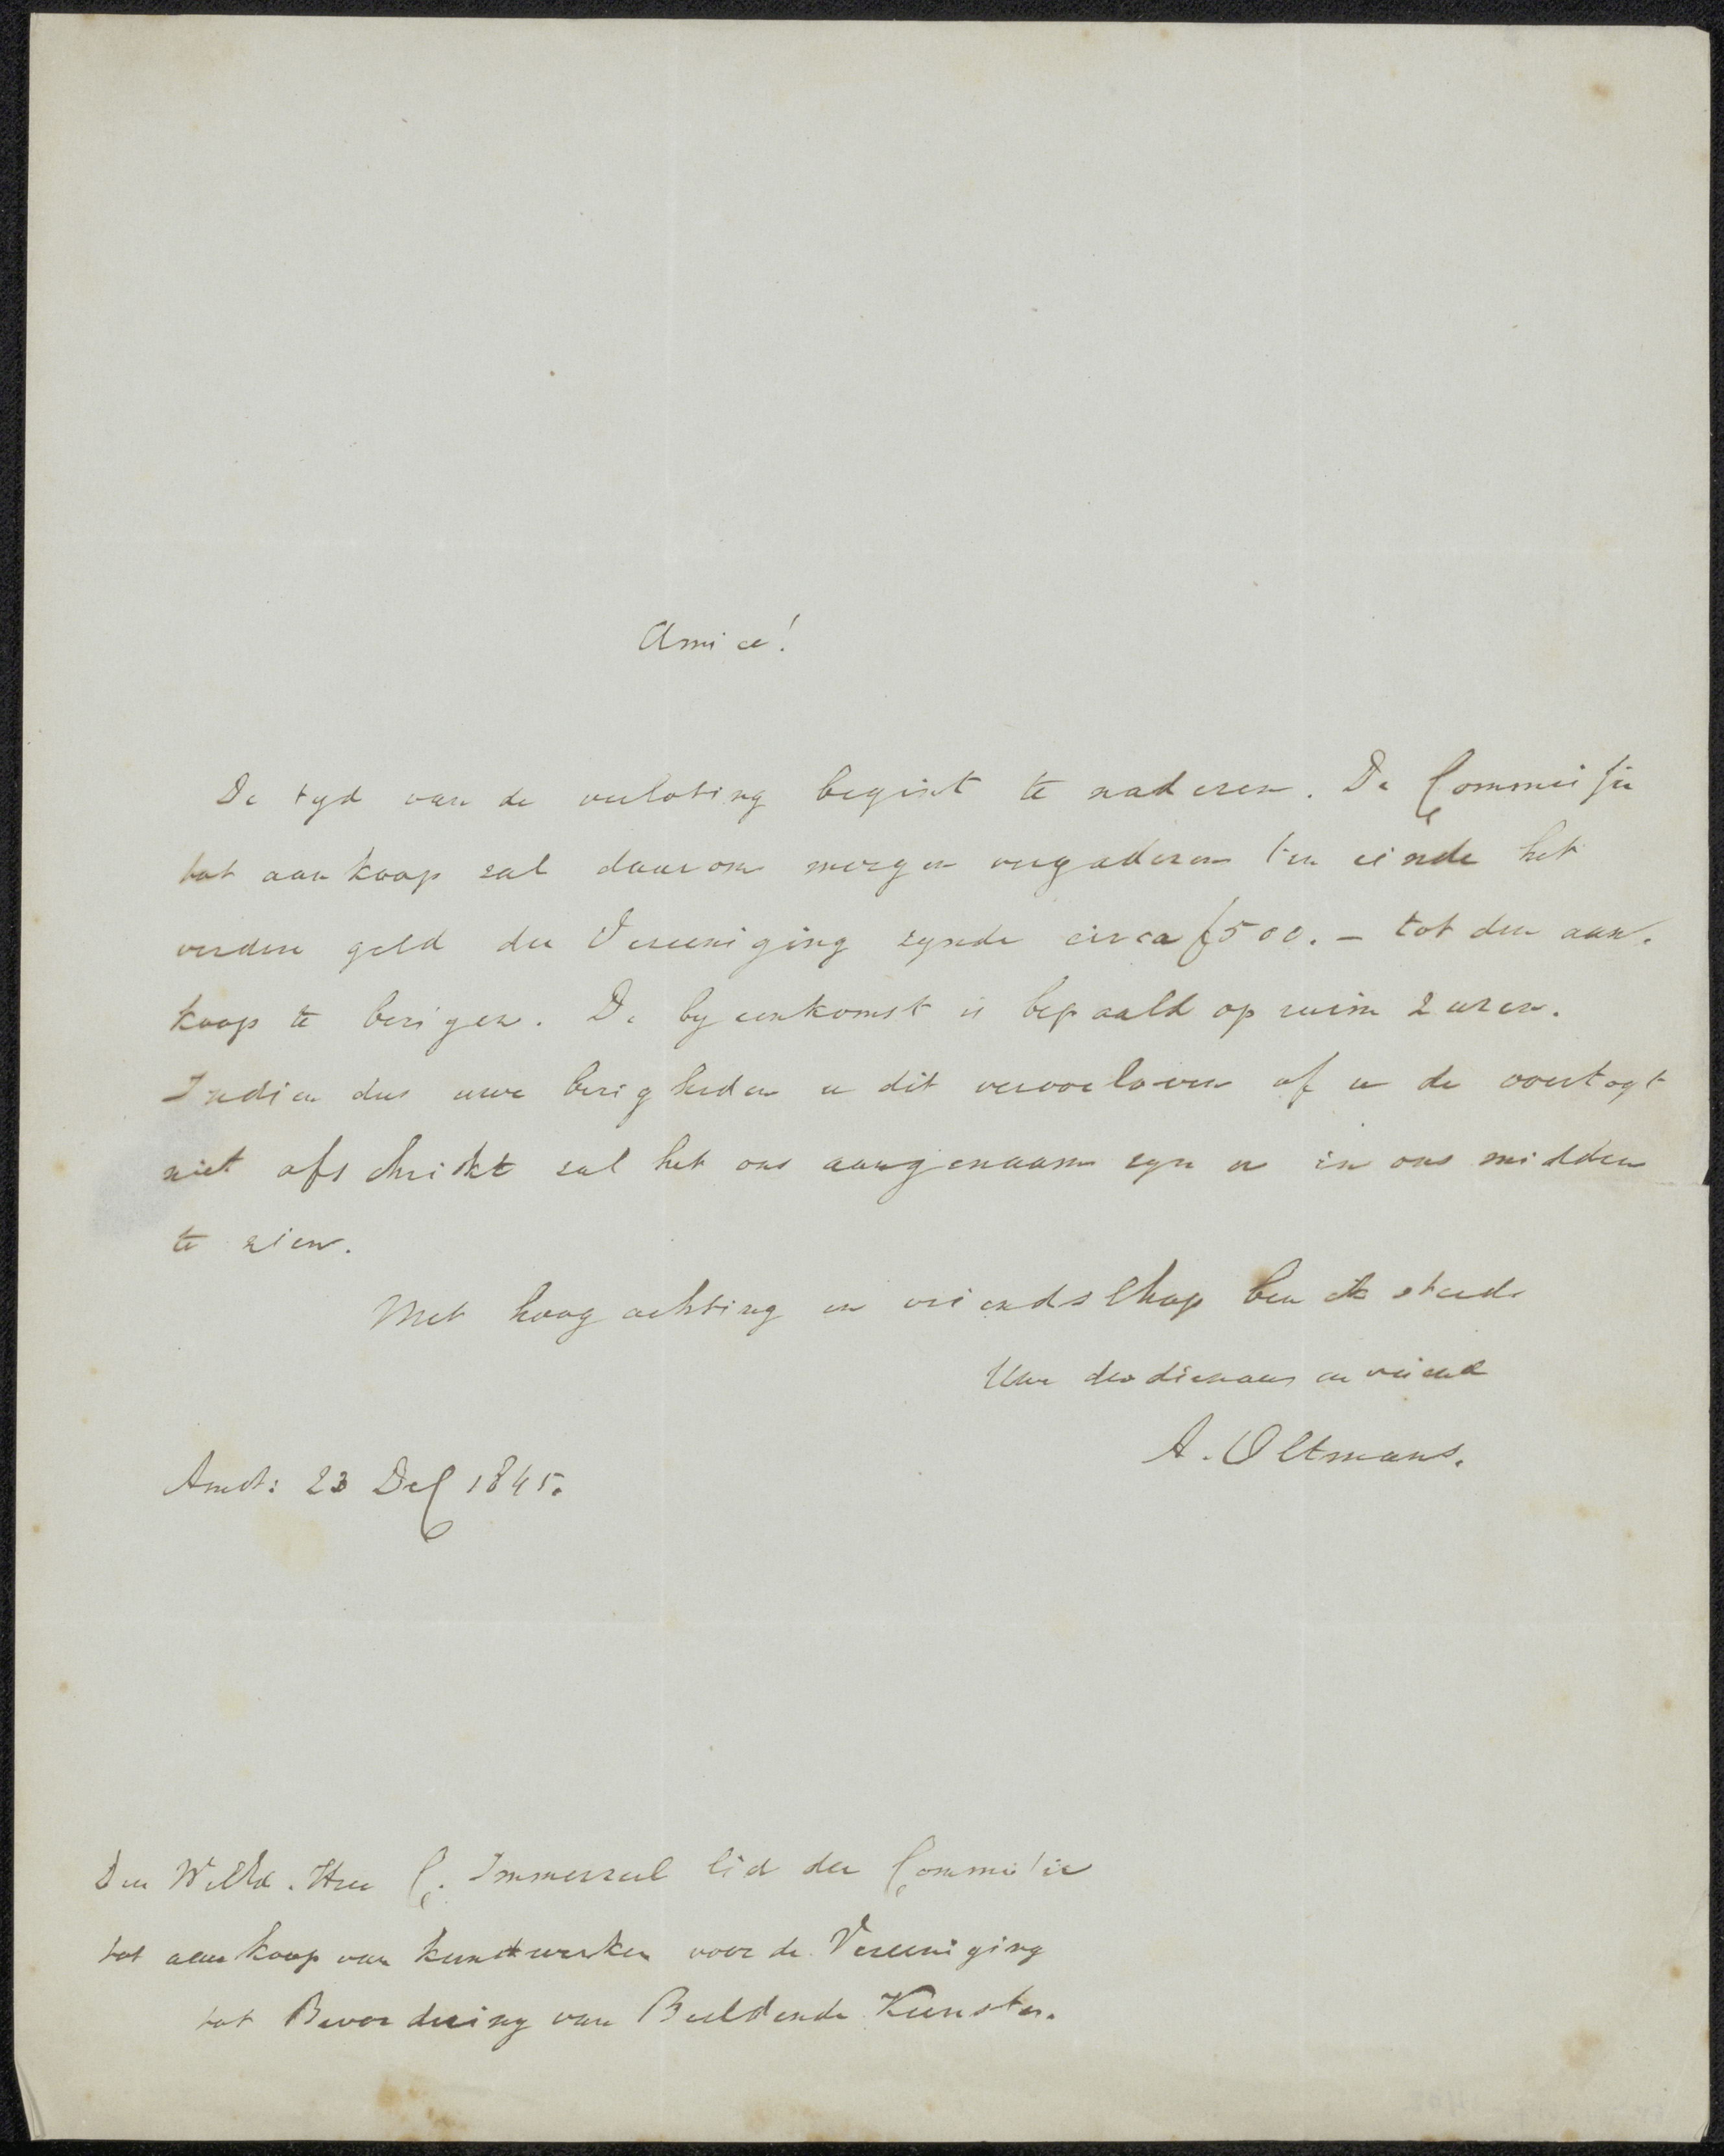 Amice!
De tyd van de verloting begint te naderen. De Commissie
tot aankoop zal daarom morgen vergaderen ten einde het
verdere geld der Vereeniging zynde circa f500.- tot den aan-
koop te bezigen. De byeenkomst is bepaald op ruim 2 uren.
Indien dus uwe bezigheden u dit veroorloven of u de overtogt
niet afschrikt zal het ons aangenaam zyn u in ons midden
te zien.
Met hoogachting en vriendschap ben ik steeds
Uwe dienaar en vriend
A. Oltmans.
Amst: 23 Dec 1845.
Den WelEd. Heer C. Immerzeel lid der Commissie
tot aankoop van kunstwerken voor de Vereeniging
tot Bevordering van Beeldende Kunsten.